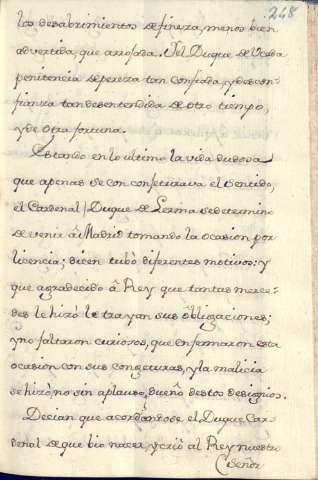 248
los desabrimientos de fineza, menos bien
advertida, que arrojada. Del Duque de Uzeda
penitencia de pereza tan confiada, y descon-
fianza tan desentendida de otro tiempo,
y de otra fortuna.
Estando en lo ultimo la vida dudosa
que apenas se con conjeturava el sentido,
el Cardenal Duque de Lerma se determinò
de venir á Madrid tomando la ocasion por
licencia; dicen tubò diferentes motivos: y
que agradecido â Rey que tantas merce-
des le hizò le trayan sus obligaciones;
y no faltaron curiosos, que enfermaron esta
ocasion con sus congeturas, y la malicia
se hizò, no sin aplauso, dueño destos designios.
Decian que acordandose el Duque Car-
denal de que bio nacer, y criò al Rey nuestro
Señor